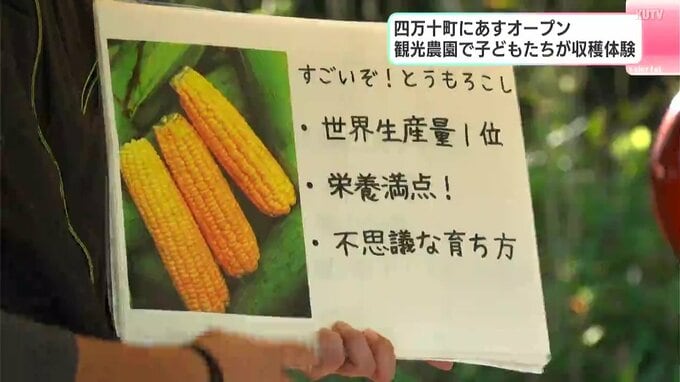 KUTV
四万十町にあすオープン
観光農園で子どもたちが収穫体験
すごいぞ！とうもろこし
・世界生産量1位
・栄養満点！
・不思議な育ち方